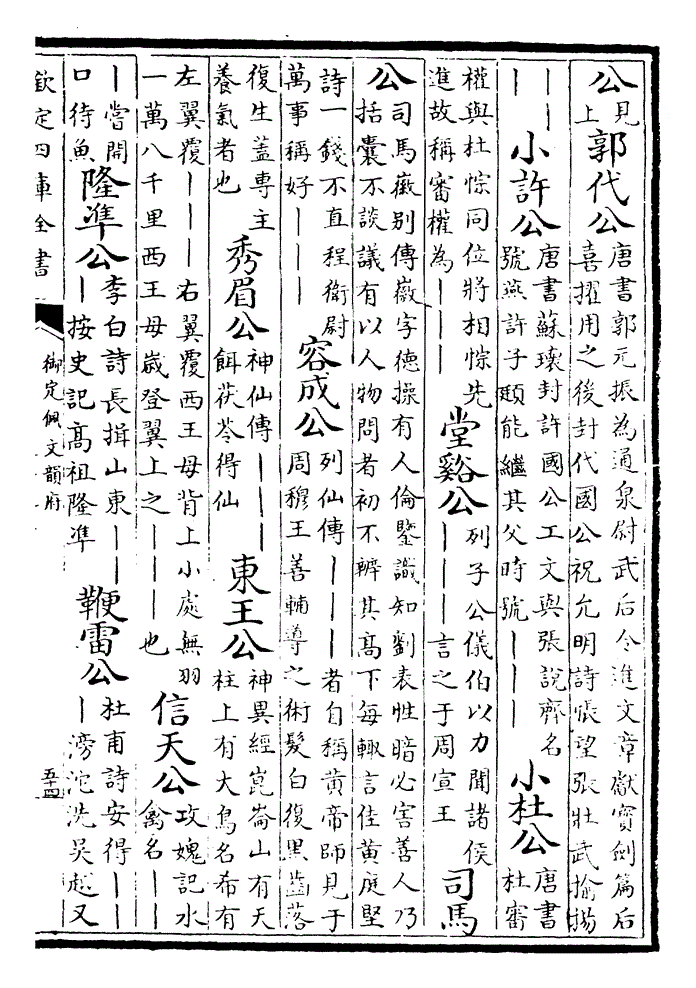 公見上郭代公唐書郭元振為通泉尉武后令進文章獻寳劍篇后喜擢用之後封代國公祝允明詩悵望張壯武揄揚
————小許公唐書蘇瓌封許國公工文與張說齊名號燕許子頲能繼其父時號———小杜公唐書杜審
權與杜悰同位將相悰先進故稱審權為———堂谿公列子公儀伯以力聞諸侯———言之于周宣王司馬
公司馬徽别傳徽字德操有人倫鑒識知劉表性暗必害善人乃括囊不談議有以人物問者初不辨其髙下每輙言佳黄庭堅
詩一錢不直程衛尉萬事稱好————容成公列仙傳———者自稱黄帝師見于周穆王善輔導之術髮白復黒齒落
復生蓋専主養氣者也秀眉公神仙傳———餌茯苓得仙東王公神異經崑崙山有天柱上有大鳥名希有
左翼覆———右翼覆西王母背上小處無羽一萬八千里西王母嵗登翼上之———也信天公攻媿記水禽名——
—嘗開口待魚隆準公李白詩長揖山東———按史記髙祖隆準鞭雷公杜甫詩安得———滂沱洗吳越又
欽定四庫全書
御定佩文韻府
五十四